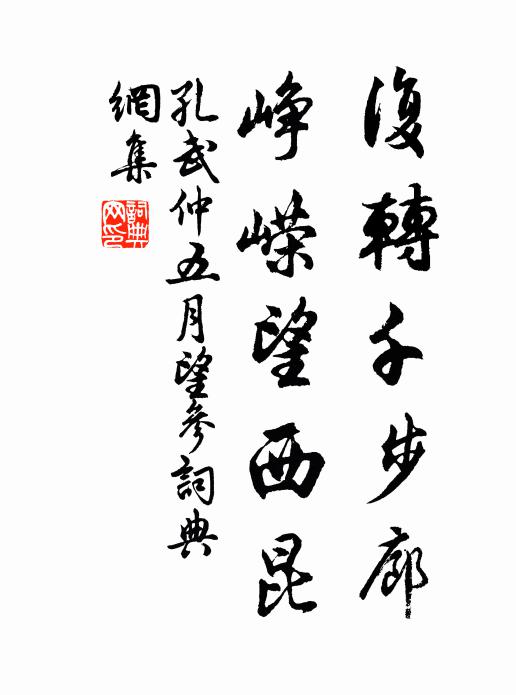 復轉千步廊
崢嶸望西昆
孔武仲五月望參詞典
網集
詞典網印